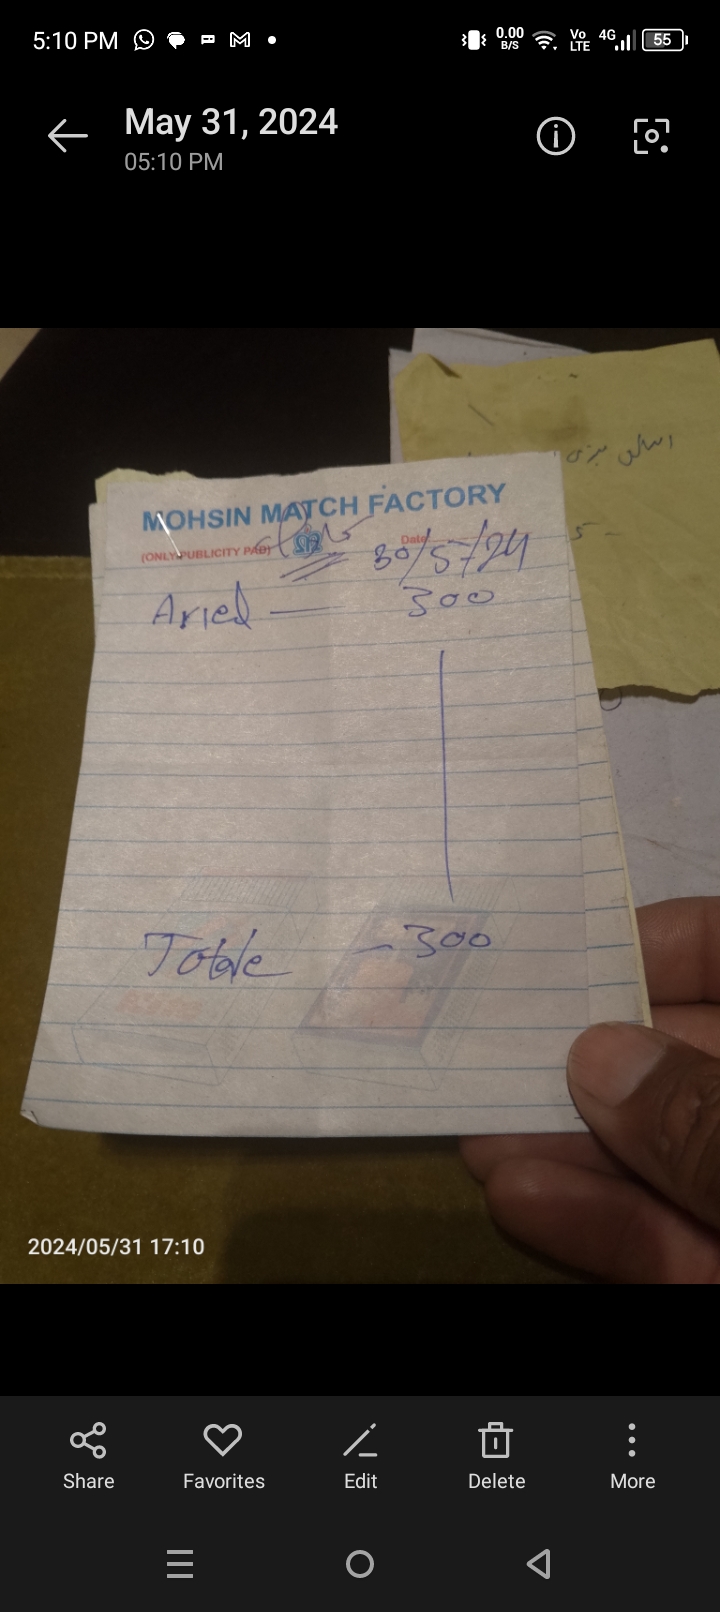 5:10 PM 0.00 B/S Vo LTE 4G 55
May 31, 2024
05:10 PM
MOHSIN MATCH FACTORY
(ONLY PUBLICITY PAD)
Date
30/5/24
Aried — 300
Totale — 300
2024/05/31 17:10
Share Favorites Edit Delete More